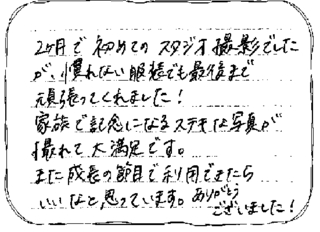 2ヶ月で初めてのスタジオ撮影でした
が、慣れない服装でも最後まで
頑張ってくれました！
家族で記念になるステキな写真が
撮れて大満足です。
また成長の節目で利用できたら
いいなと思っています。ありがとう
ございました！